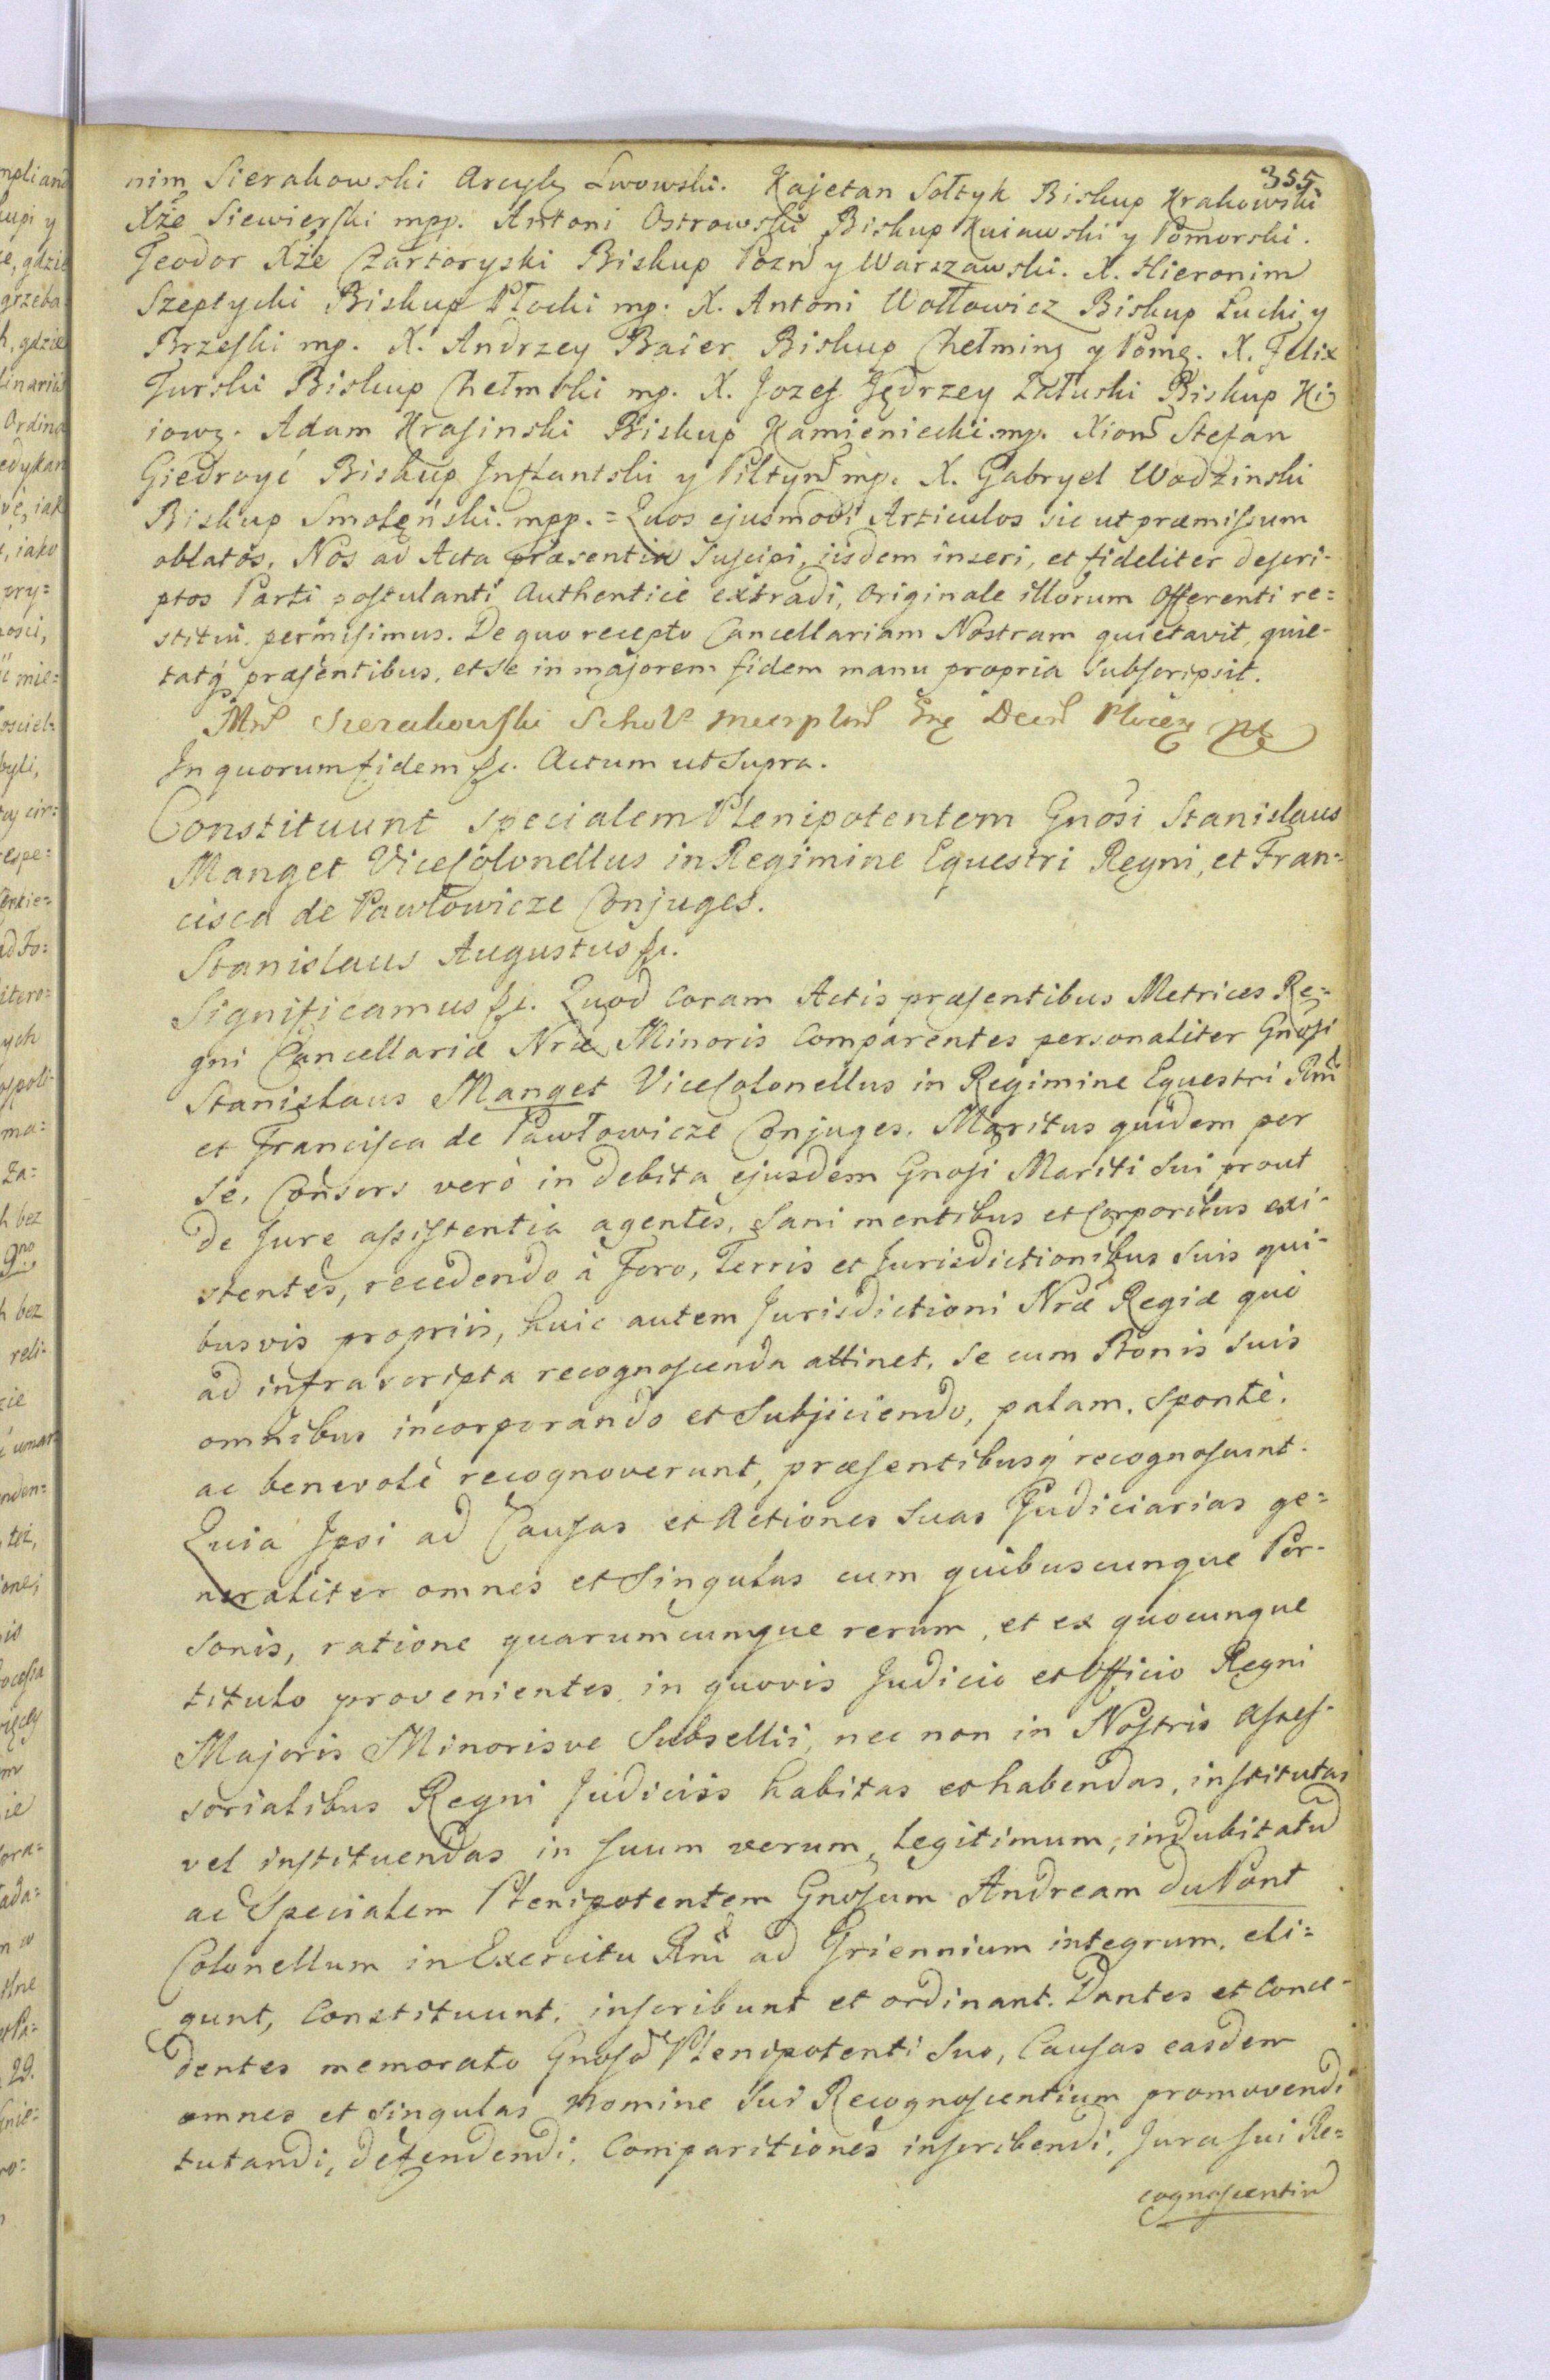 355
nim Sierakowski Arcyb. Lwowski. Kajetan Sołtyk Biskup Krakowski
Xże Siewierski mpp. Antoni Ostrowski Biskup Kuiawski y Pomorski.
Teodor Xże Czartoryski Biskup Pozń y Warszawski. X. Hieronim
Szeptycki Biskup Płocki mp. X. Antoni Wołłowicz Biskup Łucki y
Brzeski mp. X. Andrzey Baier Biskup Chełminſ y Pomſ. X. Felix
Turski Biskup Chełmski mp. X. Jozef Jędrzey Załuski Biskup Ki
iowſ. Adam Krasinski Biskup Kamieniecki mp. Xiąd Stefan
Giedroyć Biskup Inflantski y Piltyń mp. X. Gabryel Wodzinski
Biskup Smoleński. mpp. = Quos ejusmodi Articulos sic ut præmissum
oblatos, Nos ad Acta præsentia Suscipi, iisdem inseri, et fideliter descri-
ptos Parti postulanti Authenticè extradi, Originale illorum Offerenti re=
stitui permisimus. De quo recepto Cancellariam Nostram quietavit, quie-
tatq́ præsentibus, et se in majorem fidem manu propria subscripsit.
Sierakowski
In quorum fidem &c. Actum ut supra.
Constituunt specialem Plenipotentem Gnosi Stanislaus
Manget ViceColonellus in Regimine Equestri Regni, et Fran=
cisca de Pawłowicze Conjuges.
Stanislaus Augustus &c.
Significamus &c. Quod coram Actis præsentibus Metrices Re=
gni Cancellariæ Nræ Minoris Comparentes personaliter Gnosi
Stanislaus Manget ViceColonellus in Regimine Equestri Rni
et Francisca de Pawłowicze Conjuges, Maritus quidem per
se, Consors verò in debita ejusdem Gnosi Mariti sui prout
de Jure assistentia agentes, sani mentibus et Corporibus exi-
stentes, recedendo à Foro, Terris et Jurisdictionibus suis qui-
busvis propriis, huic autem Jurisdictioni Nræ Regiæ quò
ad infrascripta recognoscenda attinet, se cum Bonis suis
omnibus incorporando et Subjiciendo, palam, spontè,
ac benevolè recognoverunt, præsentibusq́ recognoscunt.
Quia Ipsi ad Causas et Actiones suas Judiciarias ge=
neraliter omnes et singulas cum quibuscunque Per-
sonis, ratione quarumcumque rerum, et ex quocunque
titulo provenientes, in quovis Judicio et Officio Regni
Majoris Minorisve Subsellii, nec non in Nostris Asses-
sorialibus Regni Judiciis habitas et habendas, institutas
vel instituendas in suum verum, legitimum, indubitatū
ac Specialem Plenipotentem Gnosum Andream du Pont
Colonellum in Exercitu Rni ad Triennium integrum, eli=
gunt, Constituunt, inscribunt et ordinant. Dantes et Conce-
dentes memorato Gnoso Plenipotenti suo, Causas easdem
omnes et singulas nomine sui Recognoscentium promovendi
tutandi, defendendi, Comparitiones inscribendi, Jura sui Re=
cognoscentiū